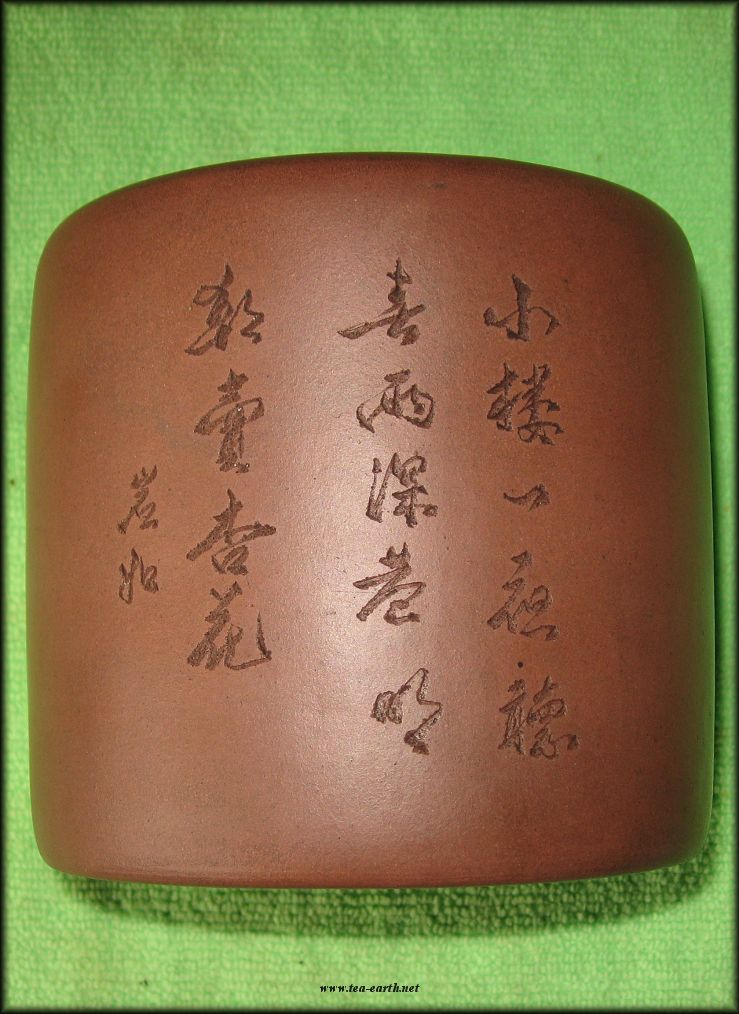 小楼一夜聽
春雨深巷明
朝賣杏花
www.tea-earth.net